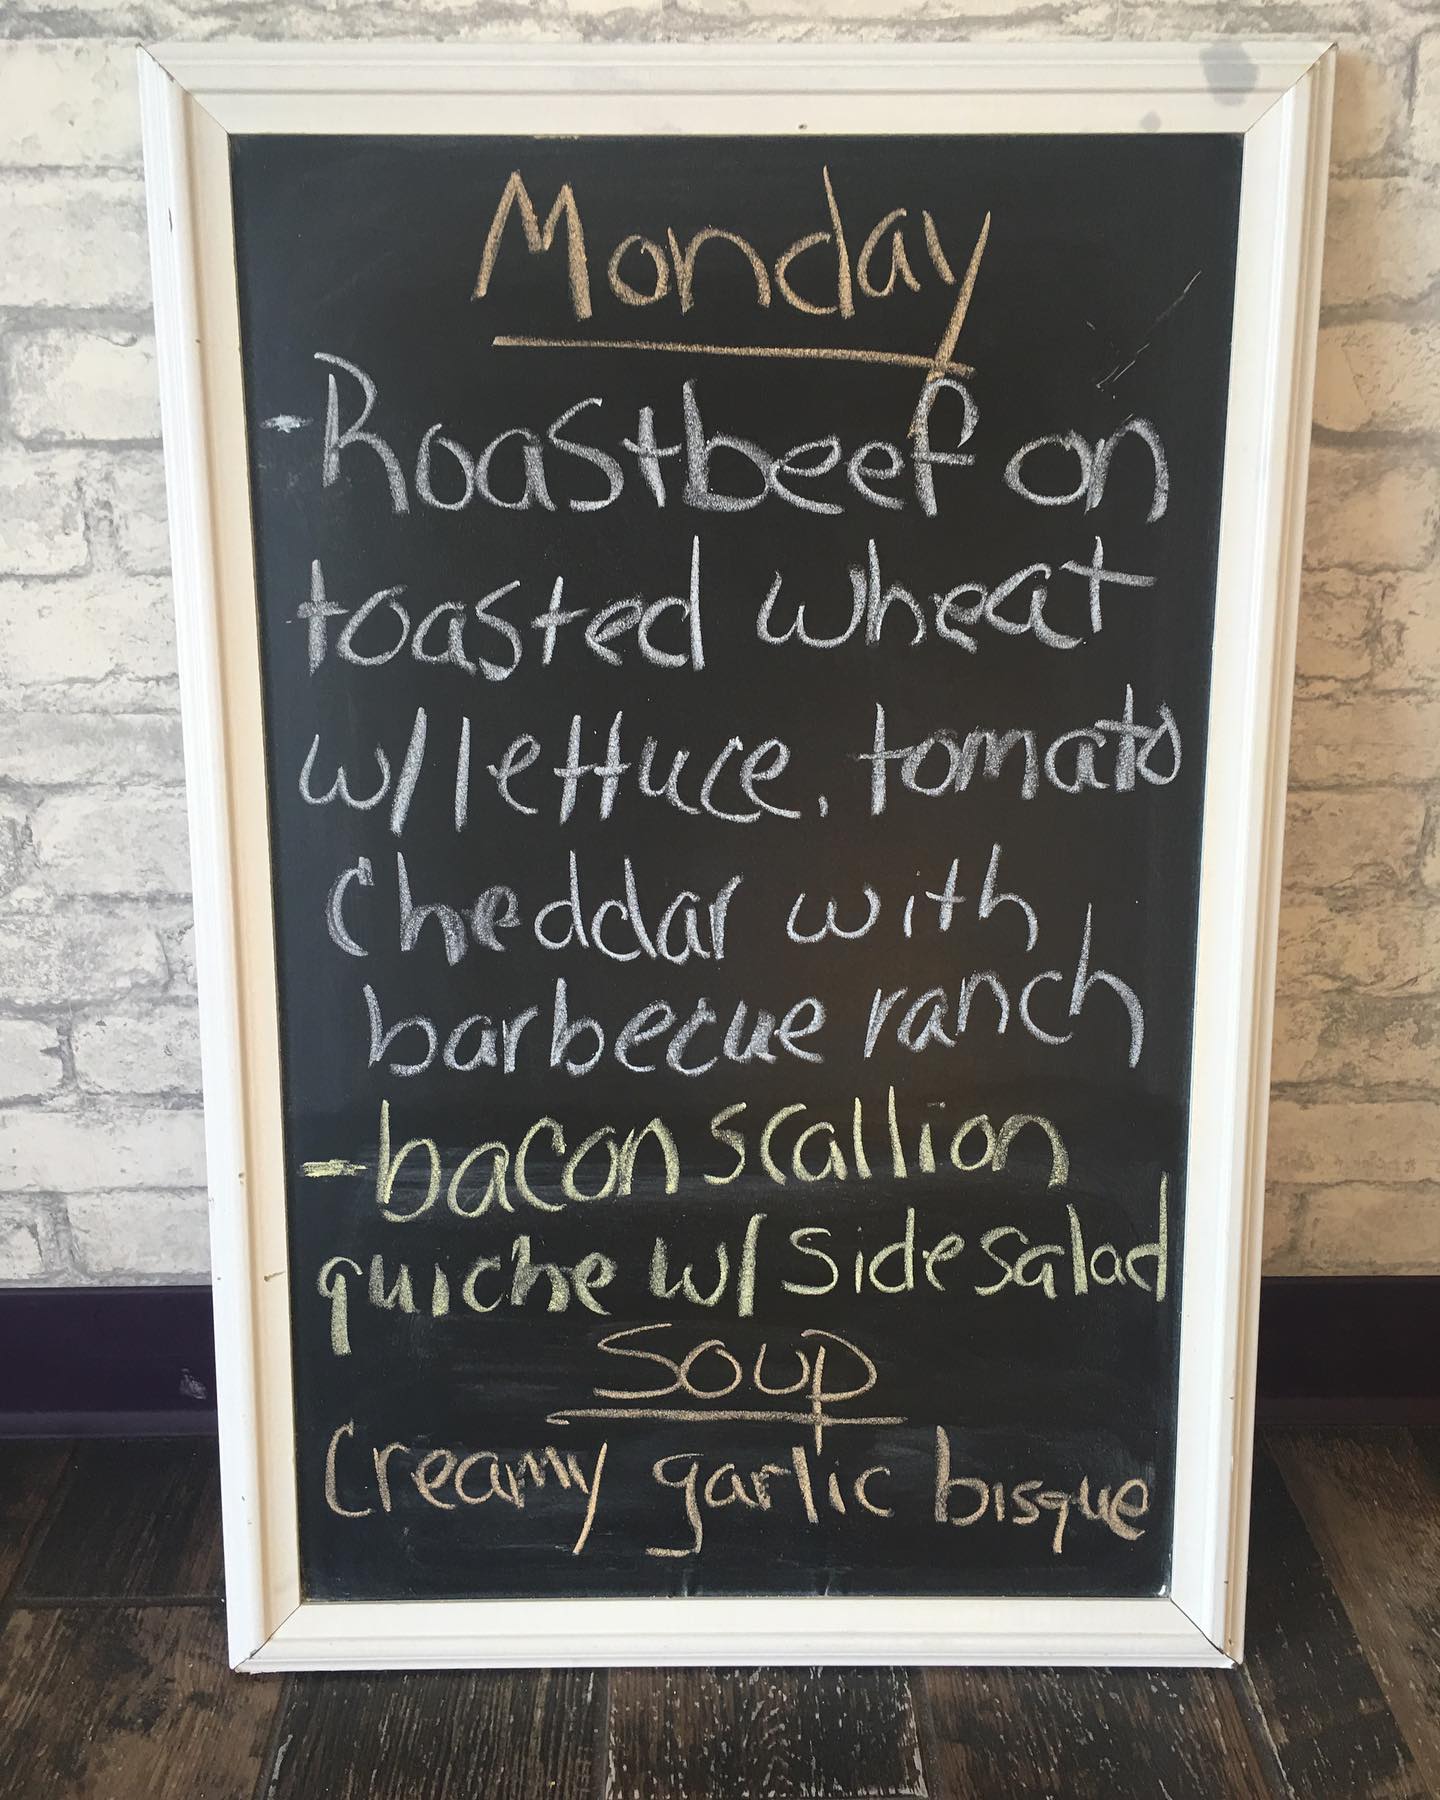 Monday
-Roastbeef on
toasted wheat
w/lettuce, tomato
Cheddar with
barbecue ranch
-bacon scallion
quiche w/ side salad
Soup
Creamy garlic bisque